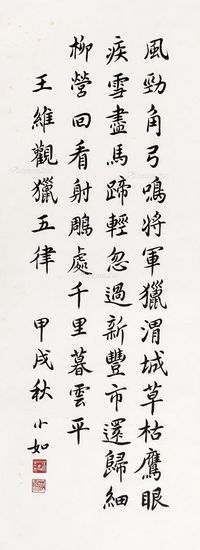 風勁角弓鳴將軍獵渭城草枯鷹眼
疾雪盡馬蹄輕忽過新豐市還歸細
柳營回看射鵰處千里暮雲平
王維觀獵五律 甲戌秋 小如